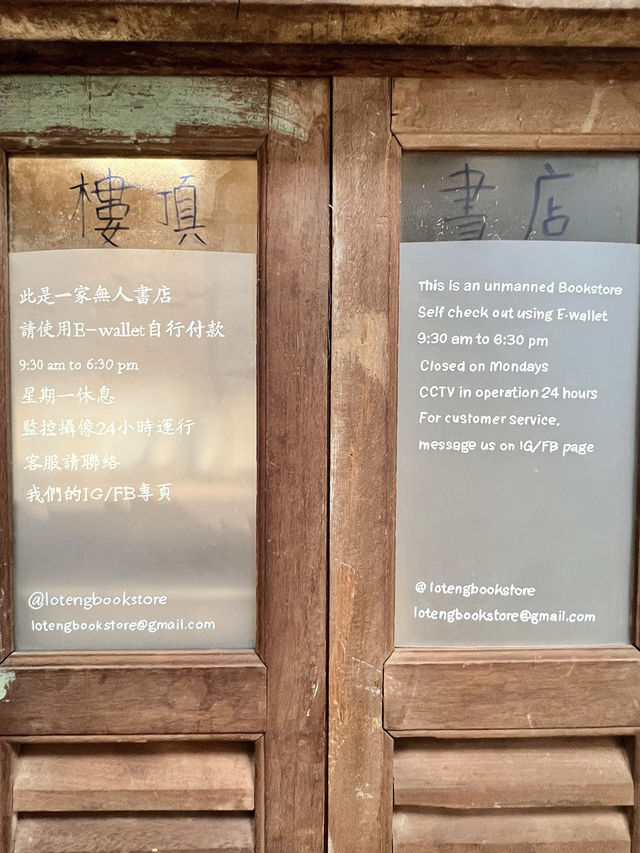 樓頂
此是一家無人書店
請使用E-wallet自行付款
9:30 am to 6:30 pm
星期一休息
監控攝像24小時運行
客服請聯絡
我們的IG/FB專頁
@lotengbookstore
lotengbookstore@gmail.com
書店
This is an unmanned Bookstore
Self check out using E-wallet
9:30 am to 6:30 pm
Closed on Mondays
CCTV in operation 24 hours
For customer service,
message us on IG/FB page
@lotengbookstore
lotengbookstore@gmail.com